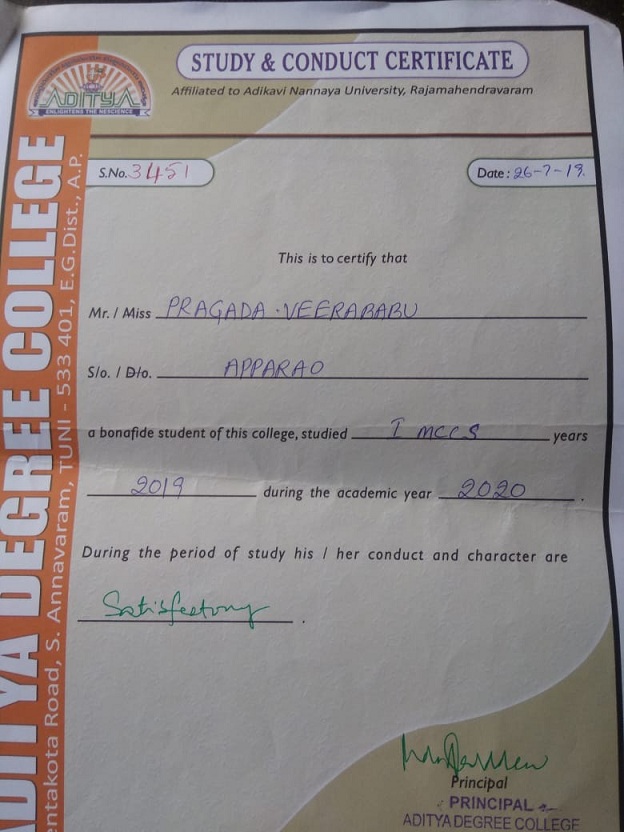 STUDY & CONDUCT CERTIFICATE
Affiliated to Adikavi Nannaya University, Rajamahendravaram
ADITYA
ENLIGHTENS THE NESCIENCE
ADITYA DEGREE COLLEGE
entakota Road, S. Annavaram, TUNI - 533 401, E.G.Dist., A.P.
S.No. 3451
Date : 26-7-19.
This is to certify that
Mr. / Miss PRAGADA . VEERABABU
S/o. / D/o. APPARAO
a bonafide student of this college, studied I MCCS years
2019 during the academic year 2020 .
During the period of study his / her conduct and character are
Satisfectony .
Principal
PRINCIPAL
ADITYA DEGREE COLLEGE